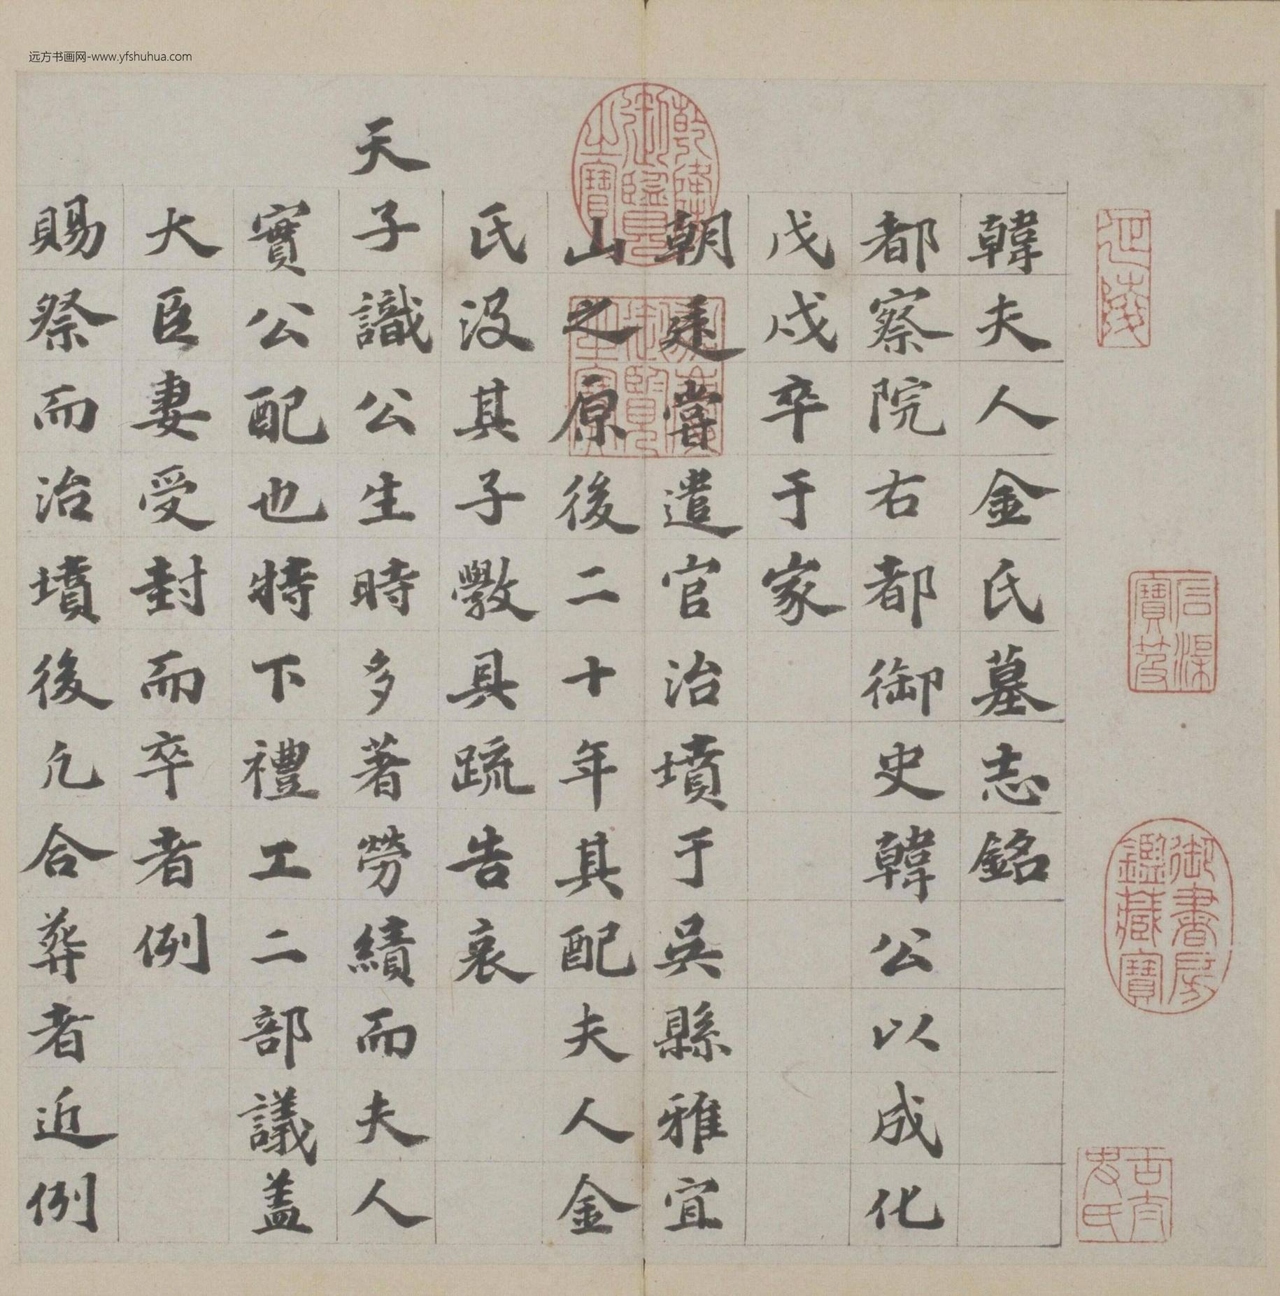 远方书画网-www.yfshuhua.com
韓夫人金氏墓志銘
都察院右都御史韓公以成化
戊戌卒于家
朝廷嘗遣官治墳于吳縣雅宜
山之原後二十年其配夫人金
氏沒其子斅具疏告哀
天子識公生時多著勞績而夫人
實公配也特下禮工二部議蓋
大臣妻受封而卒者例
賜祭而治墳後凡合葬者近例
乾隆御覽之寶
御書房鑑藏寶